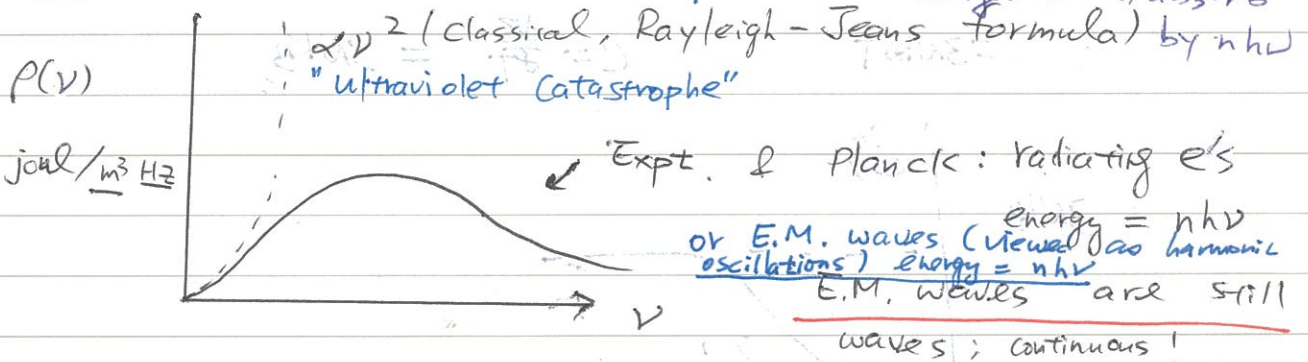 ∝ν² (Classical, Rayleigh - Jeans formula) by nhν
ρ(ν)
"Ultraviolet Catastrophe"
joul/m³ Hz
Expt. & Planck: radiating e's
energy = nhν
or E.M. waves (viewed as harmonic
oscillations) energy = nhν
E.M. waves are still
ν
waves; continuous!